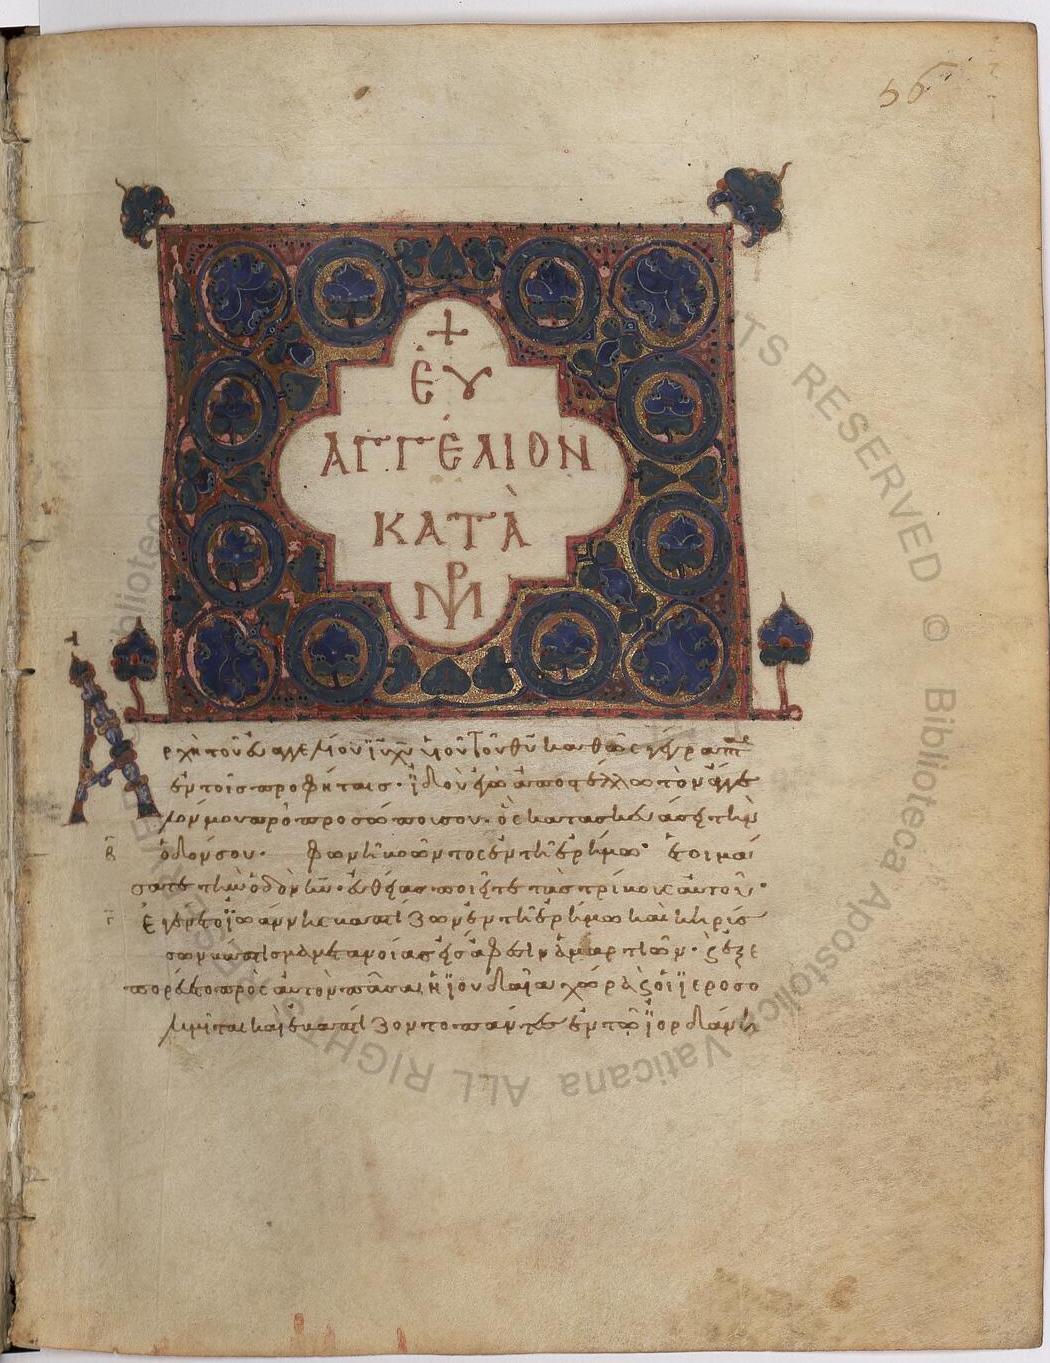 56
+
ἘΥ
ΑΓΓΈΛΙΟΝ
ΚΑΤᾺ
ΜΡ
Ἀρχὴ τοῦ εὐαγγελίου ϊυ χυ υἱοῦ τοῦ θυ καθὼς γέγραπται
ἐν τοῖς προφήταις· ϊδοὺ ἐγὼ ἀποστέλλω τὸν ἄγγε
λόν μου πρὸ προσώπου σου· ὃς κατασκευάσει τὴν
ὁδόν σου· Φωνὴ βοῶντος ἐν τῇ ἐρήμω· ἑτοιμά
σατε τὴν ὁδὸν κυ· εὐθείας ποιεῖτε τὰς τρίβους αὐτοῦ·
Ἐγένετο ϊωάννης βαπτίζων ἐν τῇ ἐρήμω καὶ κηρύσ
σων βάπτισμα μετανοίας εἰς ἄφεσιν ἁμαρτιῶν· ϗ ἐξε
πορεύετο πρὸς αὐτὸν πᾶσα ἡ ϊουδαία χώρα ϗ οἱ ϊεροσο
λυμῖται καὶ ἐβαπτίζοντο πάντες ἐν τῶ ϊορδάνη
Biblioteca Apostolica Vaticana ALL RIGHTS RESERVED ©